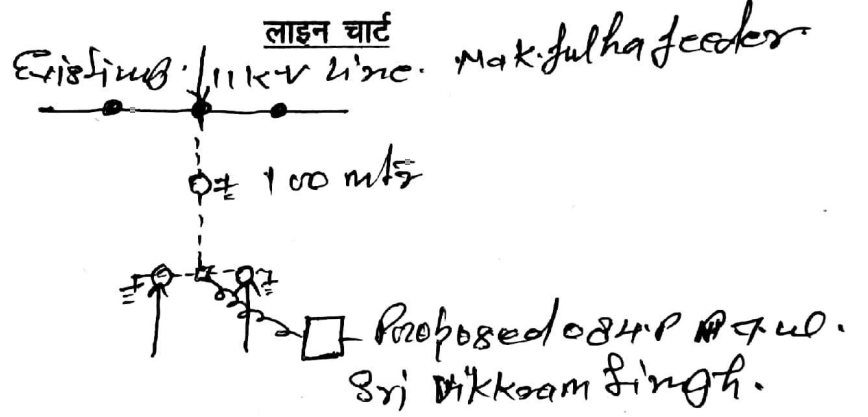 लाइन चार्ट
Existing. 11 KV Line. Mak.fulha feeder.
100 mtr
Proposed
Sri Vikkram Singh.